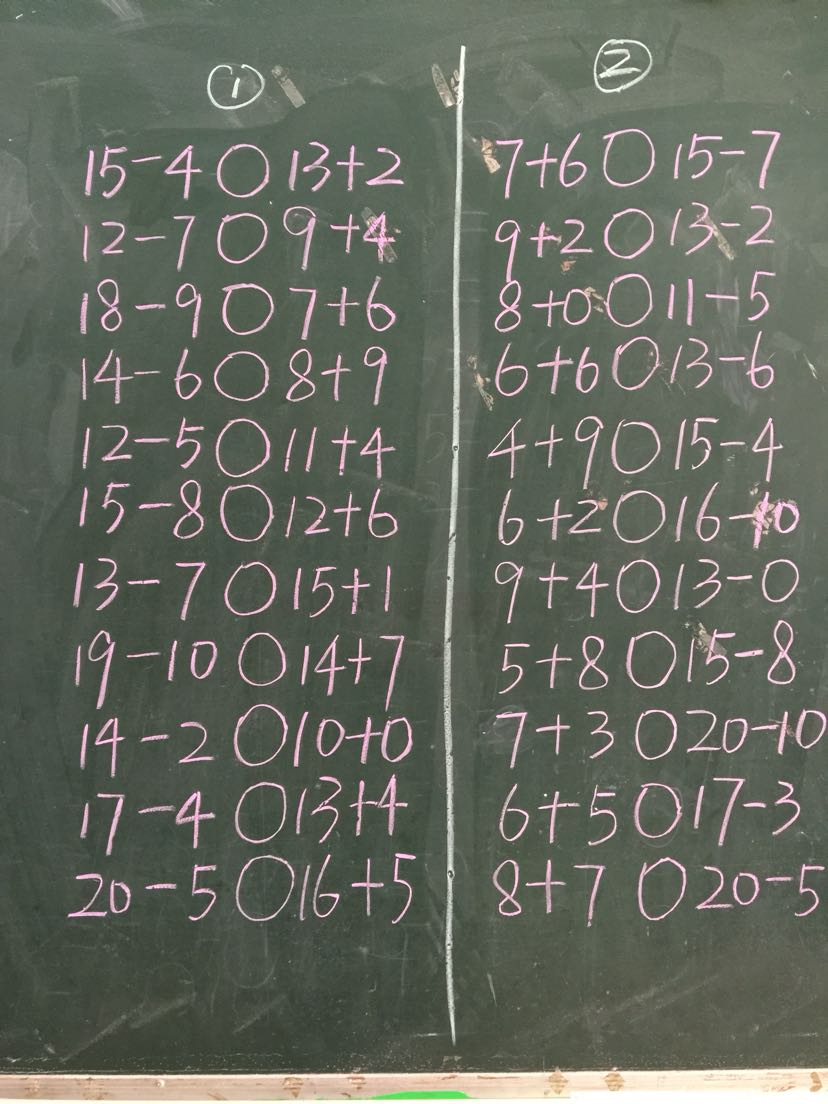 ①
15-4○13+2
12-7○9+4
18-9○7+6
14-6○8+9
12-5○11+4
15-8○12+6
13-7○15+1
19-10○14+7
14-2○10+0
17-4○13+4
20-5○16+5
②
7+6○15-7
9+2○13-2
8+0○11-5
6+6○13-6
4+9○15-4
6+2○16-10
9+4○13-0
5+8○15-8
7+3○20-10
6+5○17-3
8+7○20-5